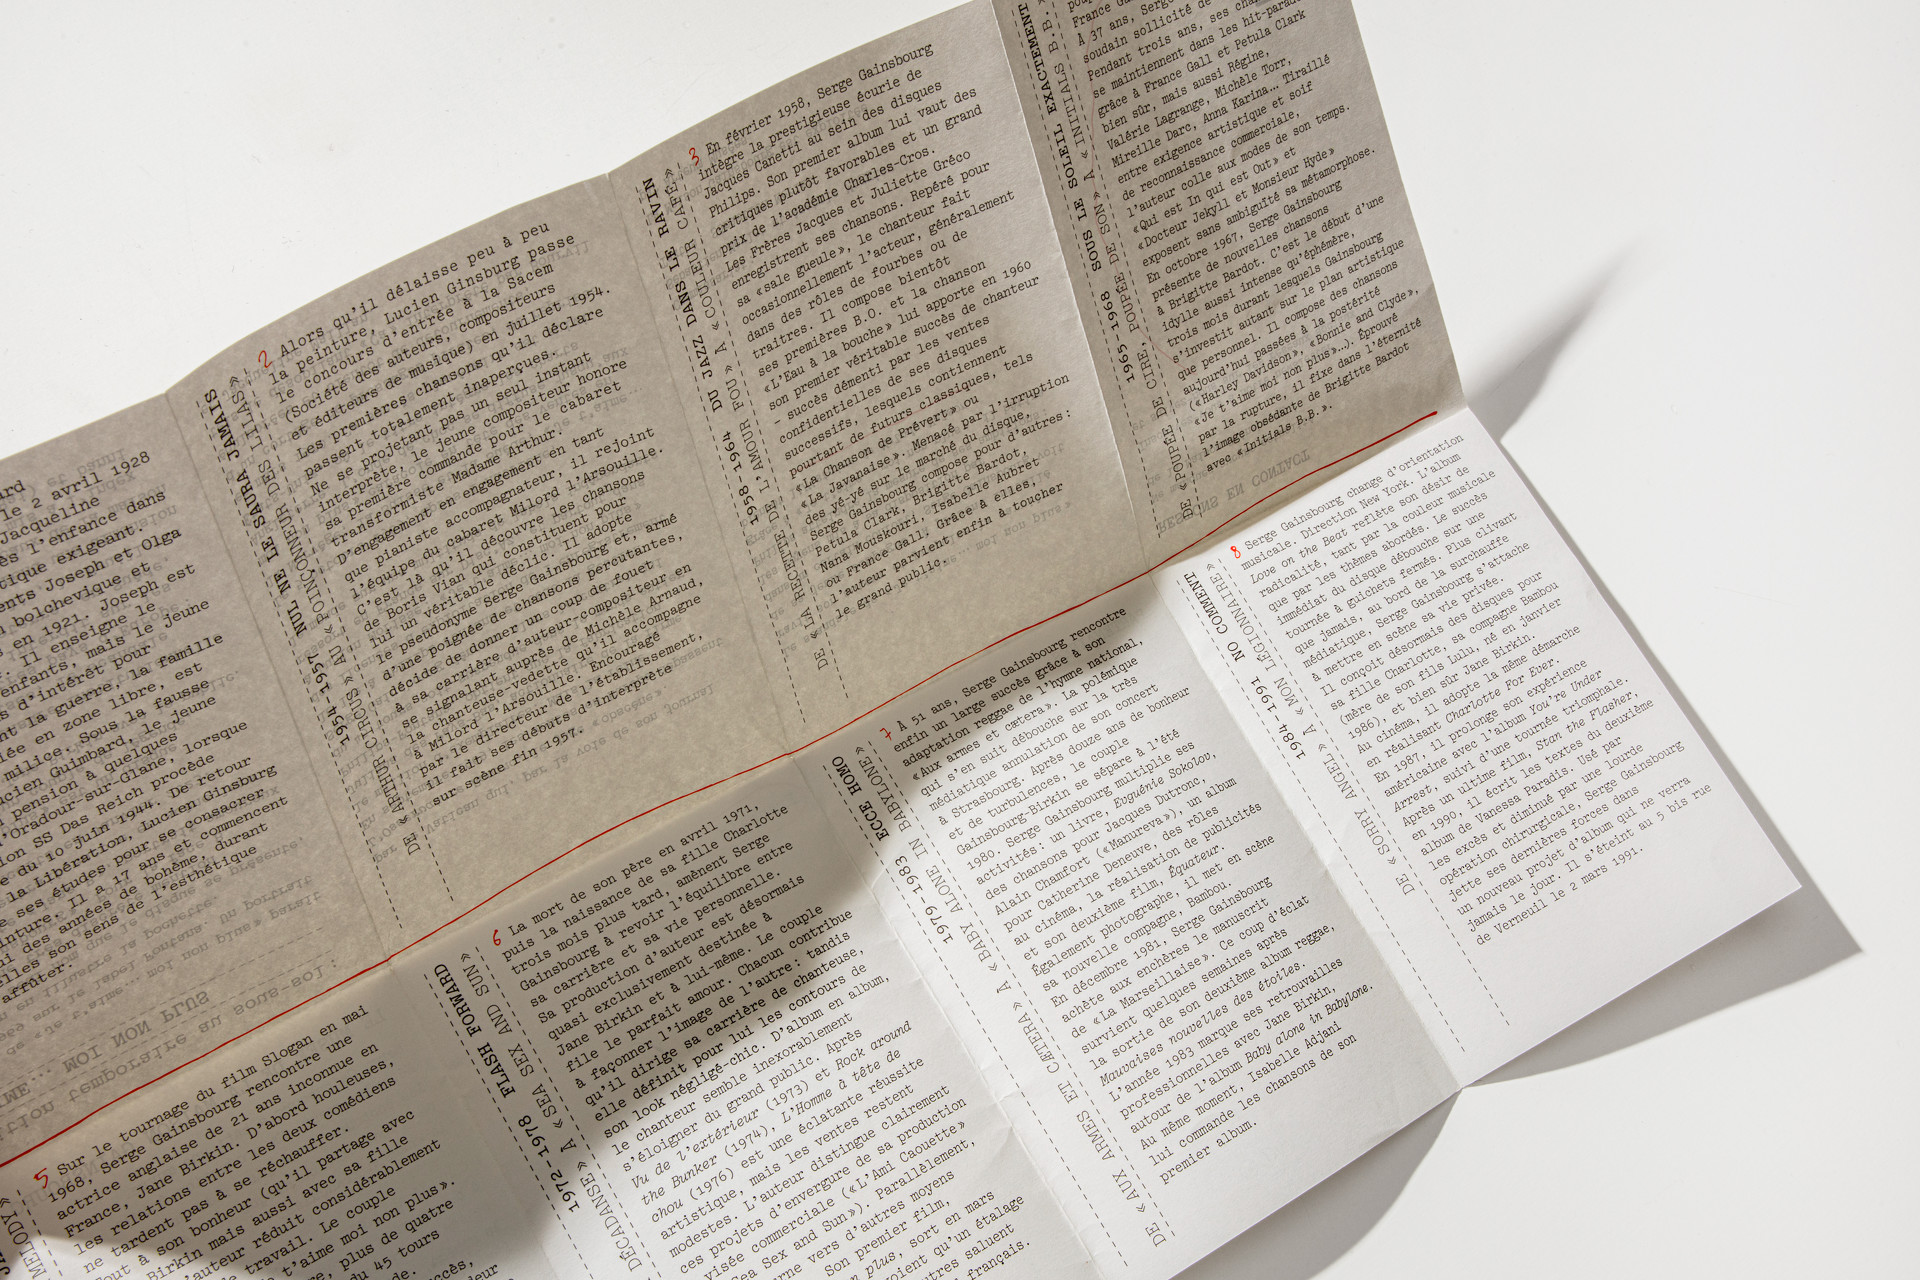 ard
le 2 avril 1928
Jacqueline
ès l'enfance dans
tique exigeant.
ents Joseph et Olga
bolchevique et
en 1921. Joseph est
Il enseigne le
enfants, mais le jeune
s d'intérêt pour
nt la guerre, la famille
iée en zone libre, est
milice. Sous la fausse
cien Guimbard, le jeune
pension à quelques
d'Oradour-sur-Glane, lorsque
ion SS Das Reich procède
e du 10 juin 1944. De retour
la Libération, Lucien Ginsburg
e ses études pour se consacrer
inture. Il a 17 ans et commencent
ui des années de bohème, durant
elles son sens de l'esthétique
affûter.
1954-1957 NUL NE LE SAURA JAMAIS
DE « ARTHUR CIRCUS » AU « POINÇONNEUR DES LILAS »
2 Alors qu'il délaisse peu à peu
la peinture, Lucien Ginsburg passe
le concours d'entrée à la Sacem
(Société des auteurs, compositeurs
et éditeurs de musique) en juillet 1954.
Les premières chansons qu'il déclare
passent totalement inaperçues.
Ne se projetant pas un seul instant
interprète, le jeune compositeur honore
sa première commande pour le cabaret
transformiste Madame Arthur.
D'engagement en engagement en tant
que pianiste accompagnateur, il rejoint
l'équipe du cabaret Milord l'Arsouille.
C'est là qu'il découvre les chansons
de Boris Vian qui constituent pour
lui un véritable déclic. Il adopte
le pseudonyme Serge Gainsbourg et, armé
d'une poignée de chansons percutantes,
décide de donner un coup de fouet
à sa carrière d'auteur-compositeur en
se signalant auprès de Michèle Arnaud,
la chanteuse-vedette qu'il accompagne
à Milord l'Arsouille. Encouragé
par le directeur de l'établissement,
il fait ses débuts d'interprète
sur scène fin 1957.
1958-1964 DU JAZZ DANS LE RAVIN
DE « LA RECETTE DE L'AMOUR FOU » À « COULEUR CAFÉ »
3 En février 1958, Serge Gainsbourg
intègre la prestigieuse écurie de
Jacques Canetti au sein des disques
Philips. Son premier album lui vaut des
critiques plutôt favorables et un grand
prix de l'académie Charles-Cros.
Les Frères Jacques et Juliette Gréco
enregistrent ses chansons. Repéré pour
sa « sale gueule », le chanteur fait
occasionnellement l'acteur, généralement
dans des rôles de fourbes ou de
traîtres. Il compose bientôt
ses premières B.O. et la chanson
« L'Eau à la bouche » lui apporte en 1960
son premier véritable succès de chanteur
– succès démenti par les ventes
confidentielles de ses disques
successifs, lesquels contiennent
pourtant de futurs classiques, tels
« La Chanson de Prévert » ou
« La Javanaise ». Menacé par l'irruption
des yé-yé sur le marché du disque,
Serge Gainsbourg compose pour d'autres :
Petula Clark, Brigitte Bardot,
Nana Mouskouri, Isabelle Aubret
ou France Gall. Grâce à elles,
l'auteur parvient enfin à toucher
le grand public.
1965-1968 SOUS LE SOLEIL EXACTEMENT
DE « POUPÉE DE CIRE, POUPÉE DE SON » À « INITIALS B.B. »
France Ga
À 37 ans, Serge
soudain sollicité de
Pendant trois ans, ses chan
se maintiennent dans les hit-parade
grâce à France Gall et Petula Clark
bien sûr, mais aussi Régine,
Valérie Lagrange, Michèle Torr,
Mireille Darc, Anna Karina… Tiraillé
entre exigence artistique et soif
de reconnaissance commerciale,
l'auteur colle aux modes de son temps.
« Qui est In qui est Out » et
« Docteur Jekyll et Monsieur Hyde »
exposent sans ambiguïté sa métamorphose.
En octobre 1967, Serge Gainsbourg
présente de nouvelles chansons
à Brigitte Bardot. C'est le début d'une
idylle aussi intense qu'éphémère,
trois mois durant lesquels Gainsbourg
s'investit autant sur le plan artistique
que personnel. Il compose des chansons
aujourd'hui passées à la postérité
(« Harley Davidson », « Bonnie and Clyde »,
« Je t'aime moi non plus »…). Éprouvé
par la rupture, il fixe dans l'éternité
l'image obsédante de Brigitte Bardot
avec « Initials B.B. ».
MELODY »
5 Sur le tournage du film Slogan en mai
1968, Serge Gainsbourg rencontre une
actrice anglaise de 21 ans inconnue en
France, Jane Birkin. D'abord houleuses,
les relations entre les deux comédiens
ne tardent pas à se réchauffer.
Tout à son bonheur (qu'il partage avec
Birkin mais aussi avec sa fille
l'auteur réduit considérablement
travail. Le couple
t'aime moi non plus ».
e, plus de quatre
du 45 tours
de.
ccès,
deur
1972-1978 FLASH FORWARD
DÉCADANSE » À « SEA SEX AND SUN »
6 La mort de son père en avril 1971,
puis la naissance de sa fille Charlotte
trois mois plus tard, amènent Serge
Gainsbourg à revoir l'équilibre entre
sa carrière et sa vie personnelle.
Sa production d'auteur est désormais
quasi exclusivement destinée à
Jane Birkin et à lui-même. Le couple
file le parfait amour. Chacun contribue
à façonner l'image de l'autre : tandis
qu'il dirige sa carrière de chanteuse,
elle définit pour lui les contours de
son look négligé-chic. D'album en album,
le chanteur semble inexorablement
s'éloigner du grand public. Après
Vu de l'extérieur (1973) et Rock around
the Bunker (1974), L'Homme à tête de
chou (1976) est une éclatante réussite
artistique, mais les ventes restent
modestes. L'auteur distingue clairement
ces projets d'envergure de sa production
visée commerciale (« L'Ami Caouette »
Sea Sex and Sun »). Parallèlement,
urne vers d'autres moyens
Son premier film,
n plus, sort en mars
voient qu'un étalage
autres saluent
français.
1979-1983 ECCE HOMO
DE « AUX ARMES ET CÆTERA » À « BABY ALONE IN BABYLONE »
7 À 51 ans, Serge Gainsbourg rencontre
enfin un large succès grâce à son
adaptation reggae de l'hymne national,
« Aux armes et cætera ». La polémique
qui s'en suit débouche sur la très
médiatique annulation de son concert
à Strasbourg. Après douze ans de bonheur
et de turbulences, le couple
Gainsbourg-Birkin se sépare à l'été
1980. Serge Gainsbourg multiplie ses
activités : un livre, Evguénie Sokolov,
des chansons pour Jacques Dutronc,
Alain Chamfort (« Manureva »), un album
pour Catherine Deneuve, des rôles
au cinéma, la réalisation de publicités
et son deuxième film, Équateur.
Également photographe, il met en scène
sa nouvelle compagne, Bambou.
En décembre 1981, Serge Gainsbourg
achète aux enchères le manuscrit
de « La Marseillaise ». Ce coup d'éclat
survient quelques semaines après
la sortie de son deuxième album reggae,
Mauvaises nouvelles des étoiles.
L'année 1983 marque ses retrouvailles
professionnelles avec Jane Birkin,
autour de l'album Baby alone in Babylone.
Au même moment, Isabelle Adjani
lui commande les chansons de son
premier album.
1984-1991 NO COMMENT
DE « SORRY ANGEL » À « MON LÉGIONNAIRE »
8 Serge Gainsbourg change d'orientation
musicale. Direction New York. L'album
Love on the Beat reflète son désir de
radicalité, tant par la couleur musicale
que par les thèmes abordés. Le succès
immédiat du disque débouche sur une
tournée à guichets fermés. Plus clivant
que jamais, au bord de la surchauffe
médiatique, Serge Gainsbourg s'attache
à mettre en scène sa vie privée.
Il conçoit désormais des disques pour
sa fille Charlotte, sa compagne Bambou
(mère de son fils Lulu, né en janvier
1986), et bien sûr Jane Birkin.
Au cinéma, il adopte la même démarche
en réalisant Charlotte For Ever.
En 1987, il prolonge son expérience
américaine avec l'album You're Under
Arrest, suivi d'une tournée triomphale.
Après un ultime film, Stan the Flasher,
en 1990, il écrit les textes du deuxième
album de Vanessa Paradis. Usé par
les excès et diminué par une lourde
opération chirurgicale, Serge Gainsbourg
jette ses dernières forces dans
un nouveau projet d'album qui ne verra
jamais le jour. Il s'éteint au 5 bis rue
de Verneuil le 2 mars 1991.